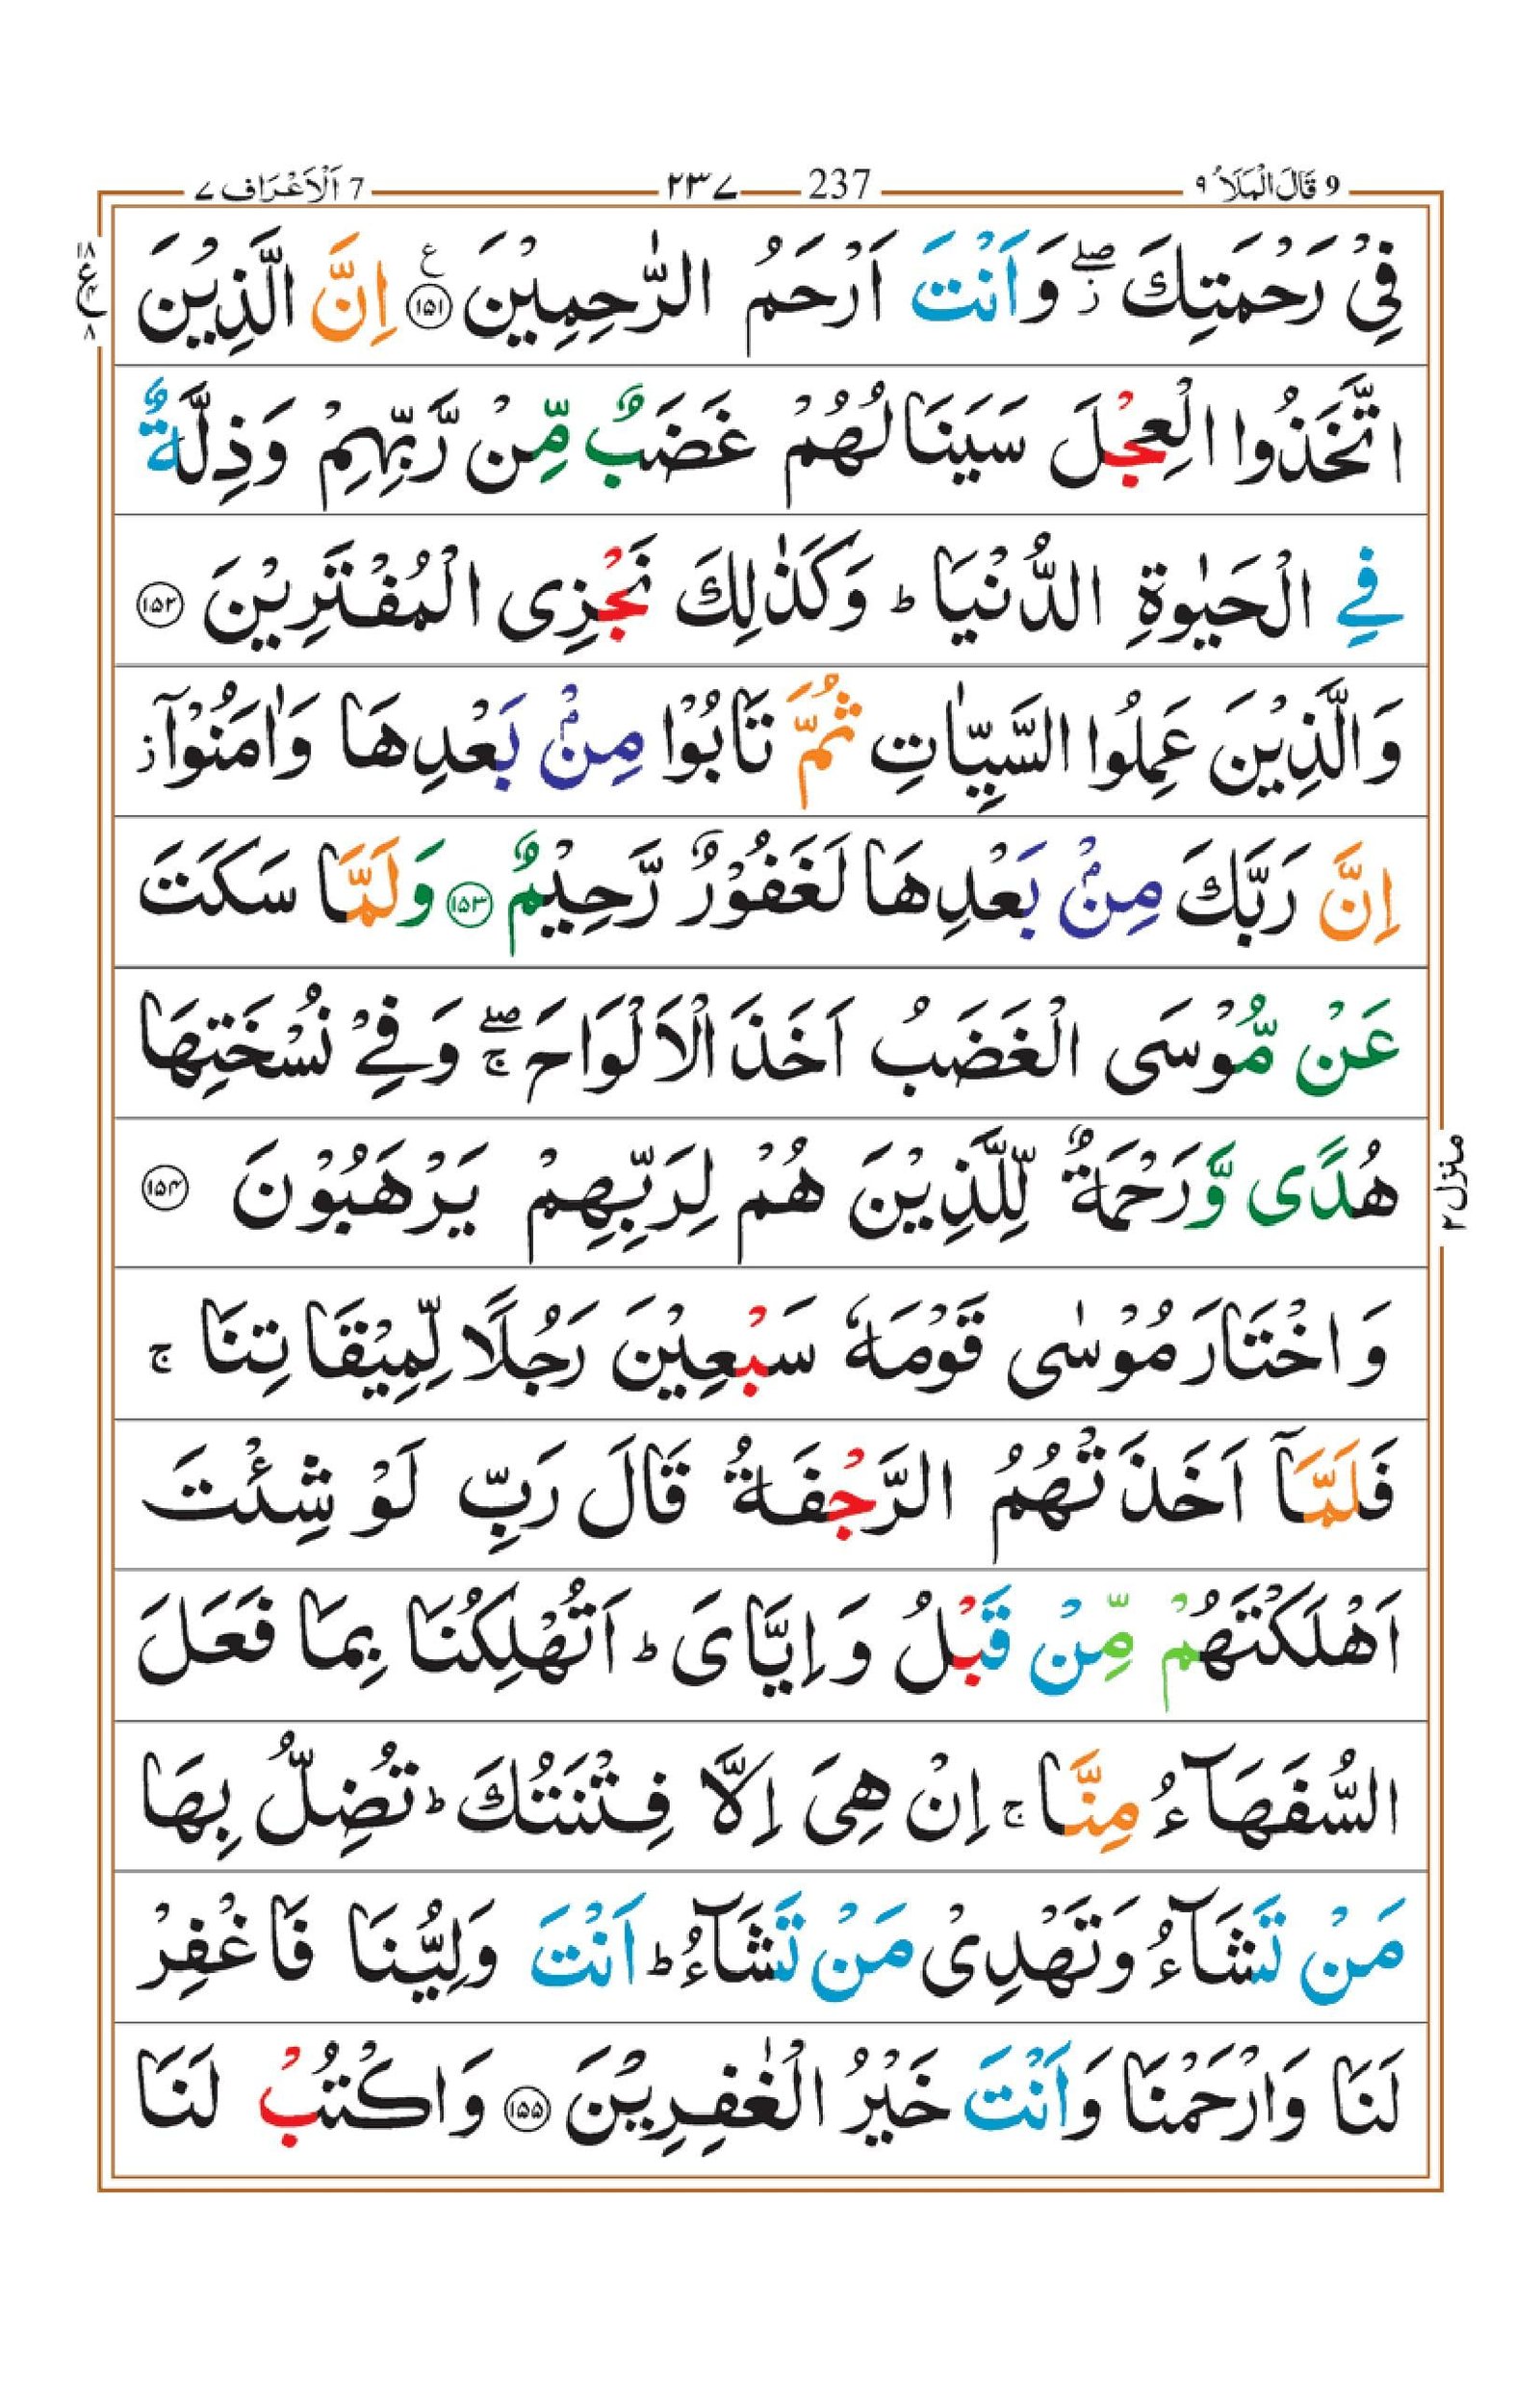 9 قَالَ الْمَلَاُ ۹
237 ۲۳۷
7 اَلْاَعْرَاف ۷
۱۸ ع ۸
فِیْ رَحْمَتِكَ ۖ٘ وَاَنْتَ اَرْحَمُ الرّٰحِمِیْنَ ۱۵۱ اِنَّ الَّذِیْنَ
اتَّخَذُوا الْعِجْلَ سَیَنَالُهُمْ غَضَبٌ مِّنْ رَّبِّهِمْ وَذِلَّةٌ
فِی الْحَیٰوةِ الدُّنْیَا ؕ وَكَذٰلِكَ نَجْزِی الْمُفْتَرِیْنَ ۱۵۲
وَالَّذِیْنَ عَمِلُوا السَّیِّاٰتِ ثُمَّ تَابُوْا مِنْۢ بَعْدِهَا وَاٰمَنُوْۤا ؗ
اِنَّ رَبَّكَ مِنْۢ بَعْدِهَا لَغَفُوْرٌ رَّحِیْمٌ ۱۵۳ وَلَمَّا سَكَتَ
عَنْ مُّوْسَی الْغَضَبُ اَخَذَ الْاَلْوَاحَ ۖۚ وَفِیْ نُسْخَتِهَا
هُدًی وَّرَحْمَةٌ لِّلَّذِیْنَ هُمْ لِرَبِّهِمْ یَرْهَبُوْنَ ۱۵۴
وَاخْتَارَ مُوْسٰی قَوْمَهٗ سَبْعِیْنَ رَجُلًا لِّمِیْقَاتِنَا ۚ
فَلَمَّاۤ اَخَذَتْهُمُ الرَّجْفَةُ قَالَ رَبِّ لَوْ شِئْتَ
اَهْلَكْتَهُمْ مِّنْ قَبْلُ وَاِیَّایَ ؕ اَتُهْلِكُنَا بِمَا فَعَلَ
السُّفَهَآءُ مِنَّا ۚ اِنْ هِیَ اِلَّا فِتْنَتُكَ ؕ تُضِلُّ بِهَا
مَنْ تَشَآءُ وَتَهْدِیْ مَنْ تَشَآءُ ؕ اَنْتَ وَلِیُّنَا فَاغْفِرْ
لَنَا وَارْحَمْنَا وَاَنْتَ خَیْرُ الْغٰفِرِیْنَ ۱۵۵ وَاكْتُبْ لَنَا
منزل ۲